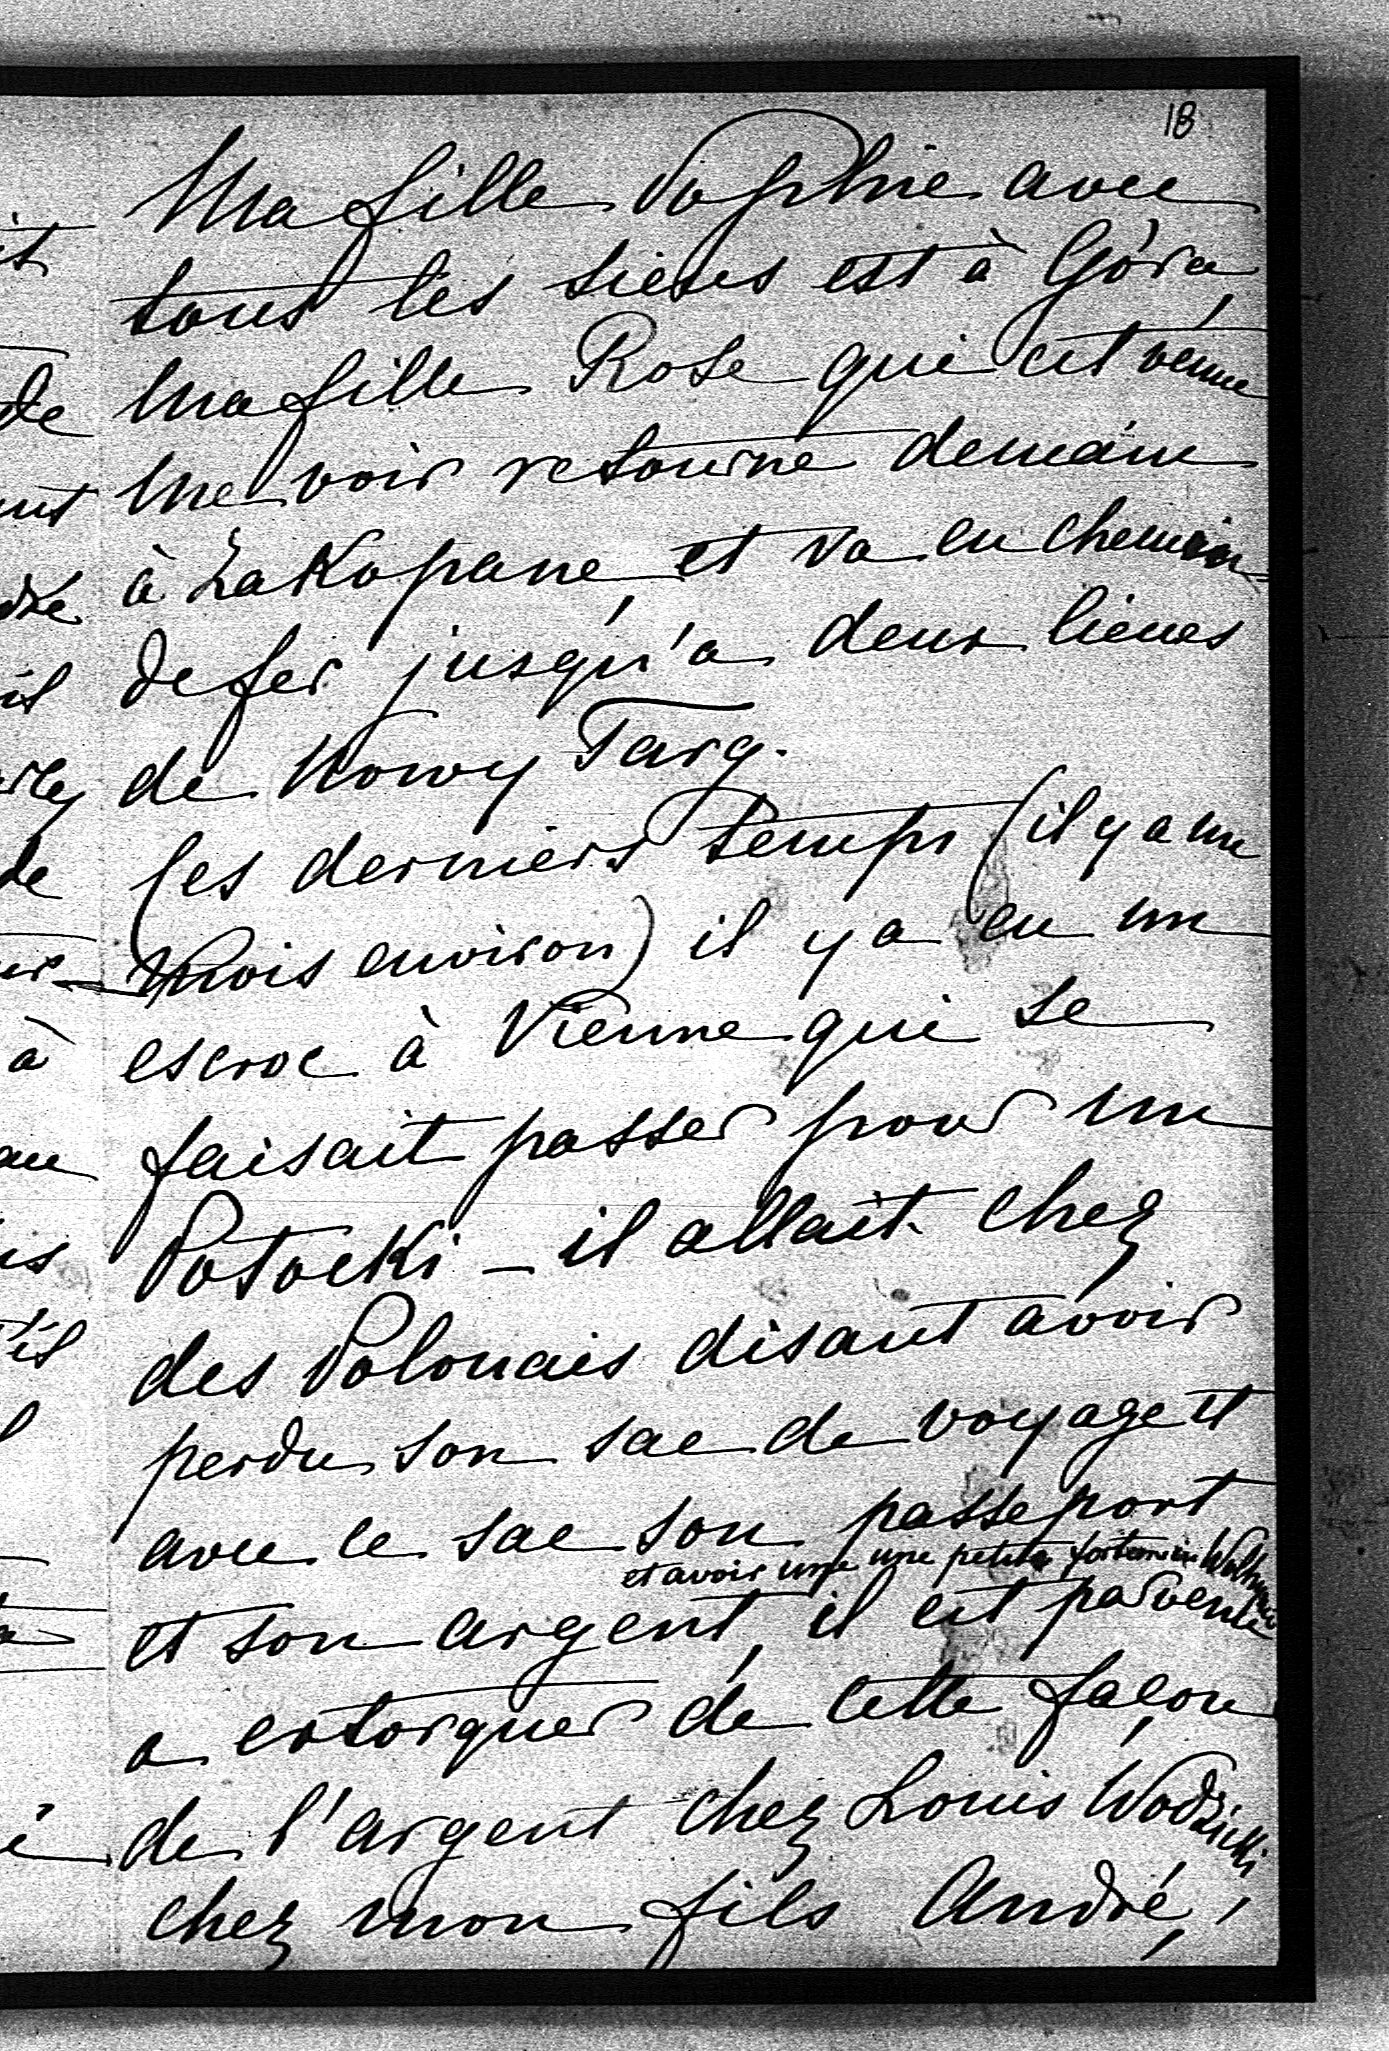 18
Ma fille Sophie avec
tous les siens est à Góra,
Ma fille Rose qui est venue
me voir retourne demain
à Zakopane, et va en chemin
de fer jusqu'a deux lieues
de Nowy Targ.
Ces derniers temps (il y a un
mois environ) il y a eu un
escroc à Vienne qui se
faisait passer pour un
Potocki – il allait chez
des Polonais disant avoir
perdu son sac de voyage et
avec ce sac son passeport
et avoir une une petite
et son argent, il est parvenu
a extorquer de cette façon,
de l'argent chez Louis Wodzicki,
chez mon fils André,